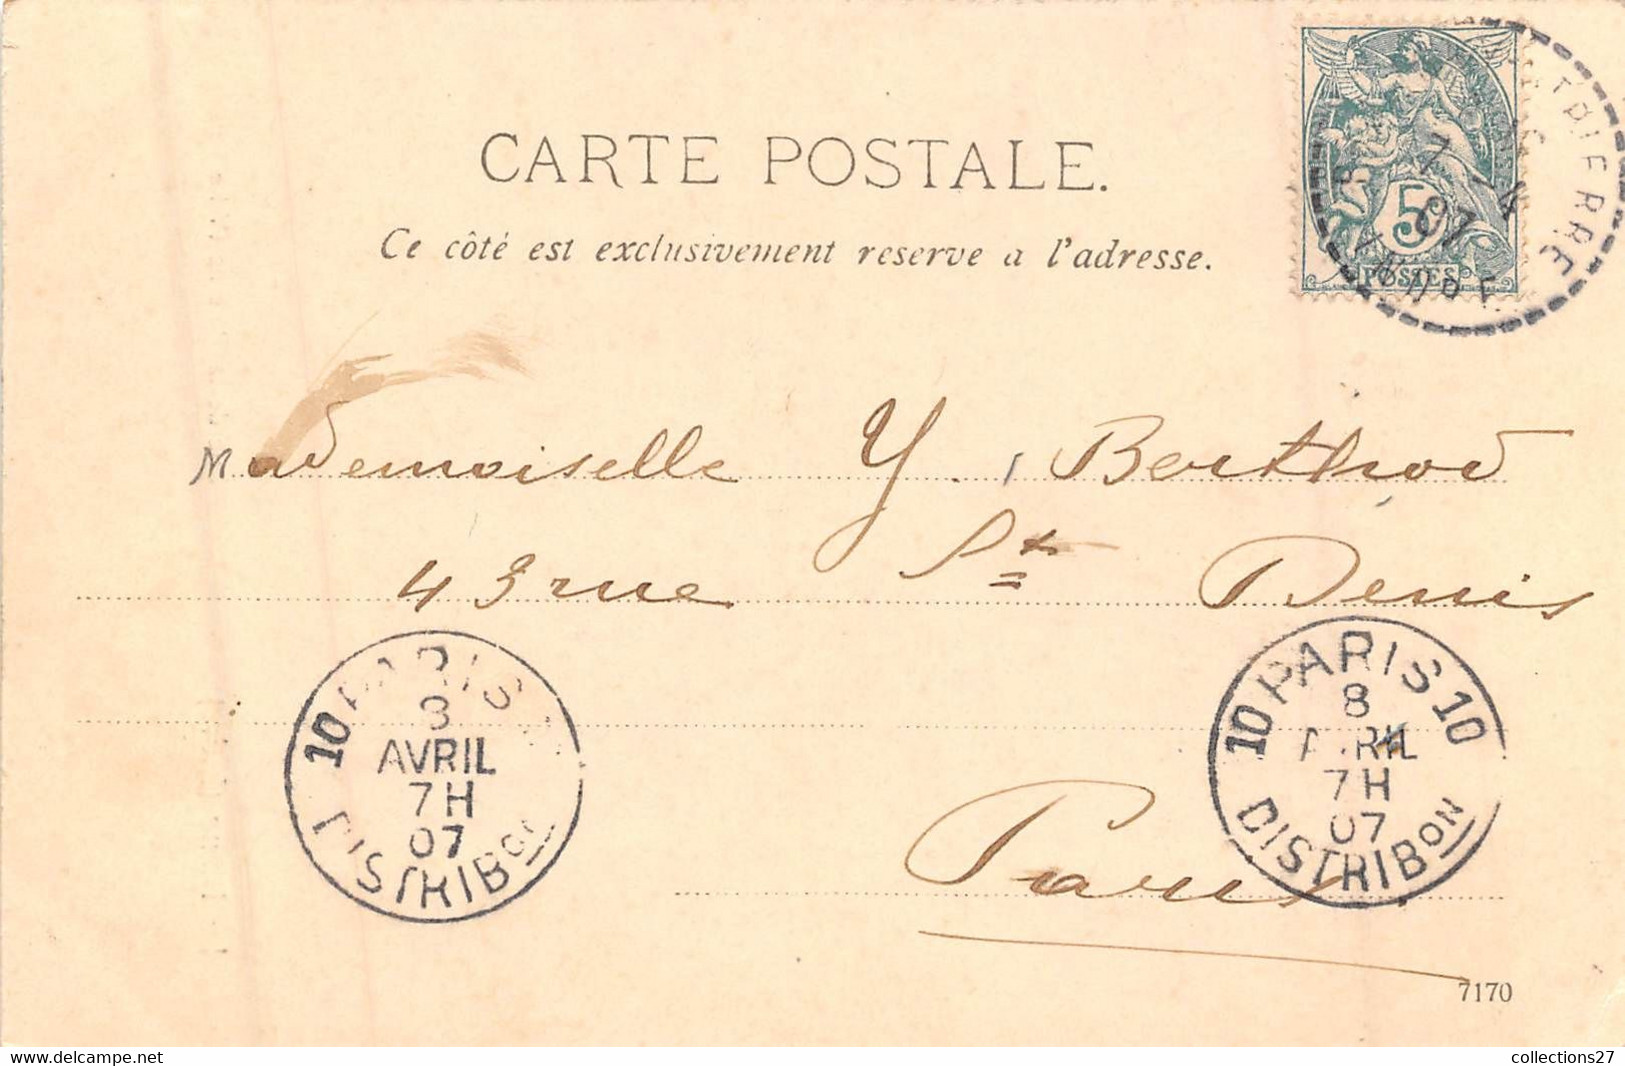 CARTE POSTALE.
Ce côté est exclusivement reserve a l'adresse.
5
POSTES
7 - 4
07
Mademoiselle Y. Berthod
43 rue St Denis
Paris.
PARIS
10
8
AVRIL
7H
07
DISTRIBON
PARIS
10 10
8
AVRIL
7H
07
DISTRIBON
7170
collections27